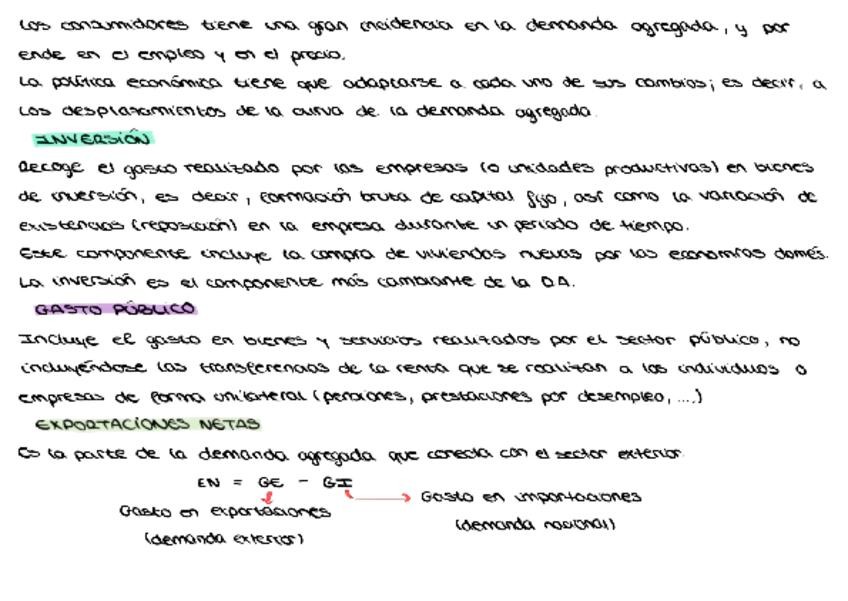 Los consumidores tiene una gran incidencia en la demanda agregada, y por
ende en el empleo y en el precio.
La política económica tiene que adaptarse a cada uno de sus cambios; es decir, a
los desplazamientos de la curva de la demanda agregada.
INVERSIÓN
Recoge el gasto realizado por las empresas (o unidades productivas) en bienes
de inversión, es decir, formación bruta de capital fijo, así como la variación de
existencias (reposición) en la empresa durante un periodo de tiempo.
Este componente incluye la compra de viviendas nuevas por las economías domés.
La inversión es el componente más cambiante de la DA.
GASTO PÚBLICO
Incluye el gasto en bienes y servicios realizados por el sector público, no
incluyéndose las transferencias de la renta que se realizan a los individuos o
empresas de forma unilateral (pensiones, prestaciones por desempleo, ....)
EXPORTACIONES NETAS
Es la parte de la demanda agregada que conecta con el sector exterior.
EN = GE - GI
Gasto en importaciones
(demanda nacional)
Gasto en exportaciones
(demanda exterior)